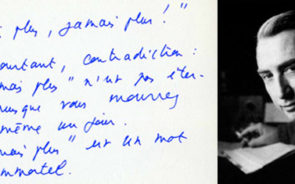 plus, jamais plus ! "
pourtant, contradiction :
mais plus " n'est pas éter-
usque vous mourrez
même un jour.
mais plus " est un mot
mmortel.